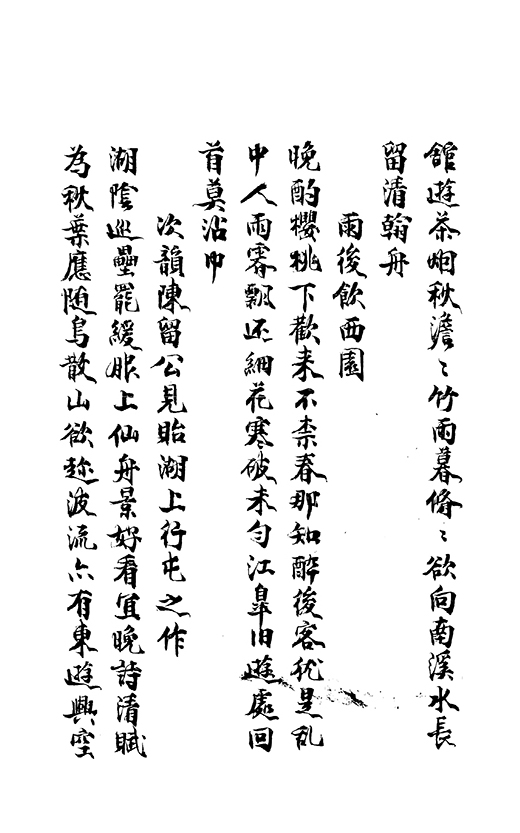 館遊茶烟秋澹〻竹雨暮脩〻欲向南溪水長
留清翰舟
雨後飲西園
晚酌櫻桃下歡来不柰春那知醉後客猶是乱
中人雨霽飄还細花寒破未勻江皐旧遊處回
首莫沾巾
次韻陳留公見貽湖上行屯之作
湖陰巡壘罷緩服上仙舟景好看宜晚詩清賦
為秋葉應随鳥散山欲趂波流六有東遊興空